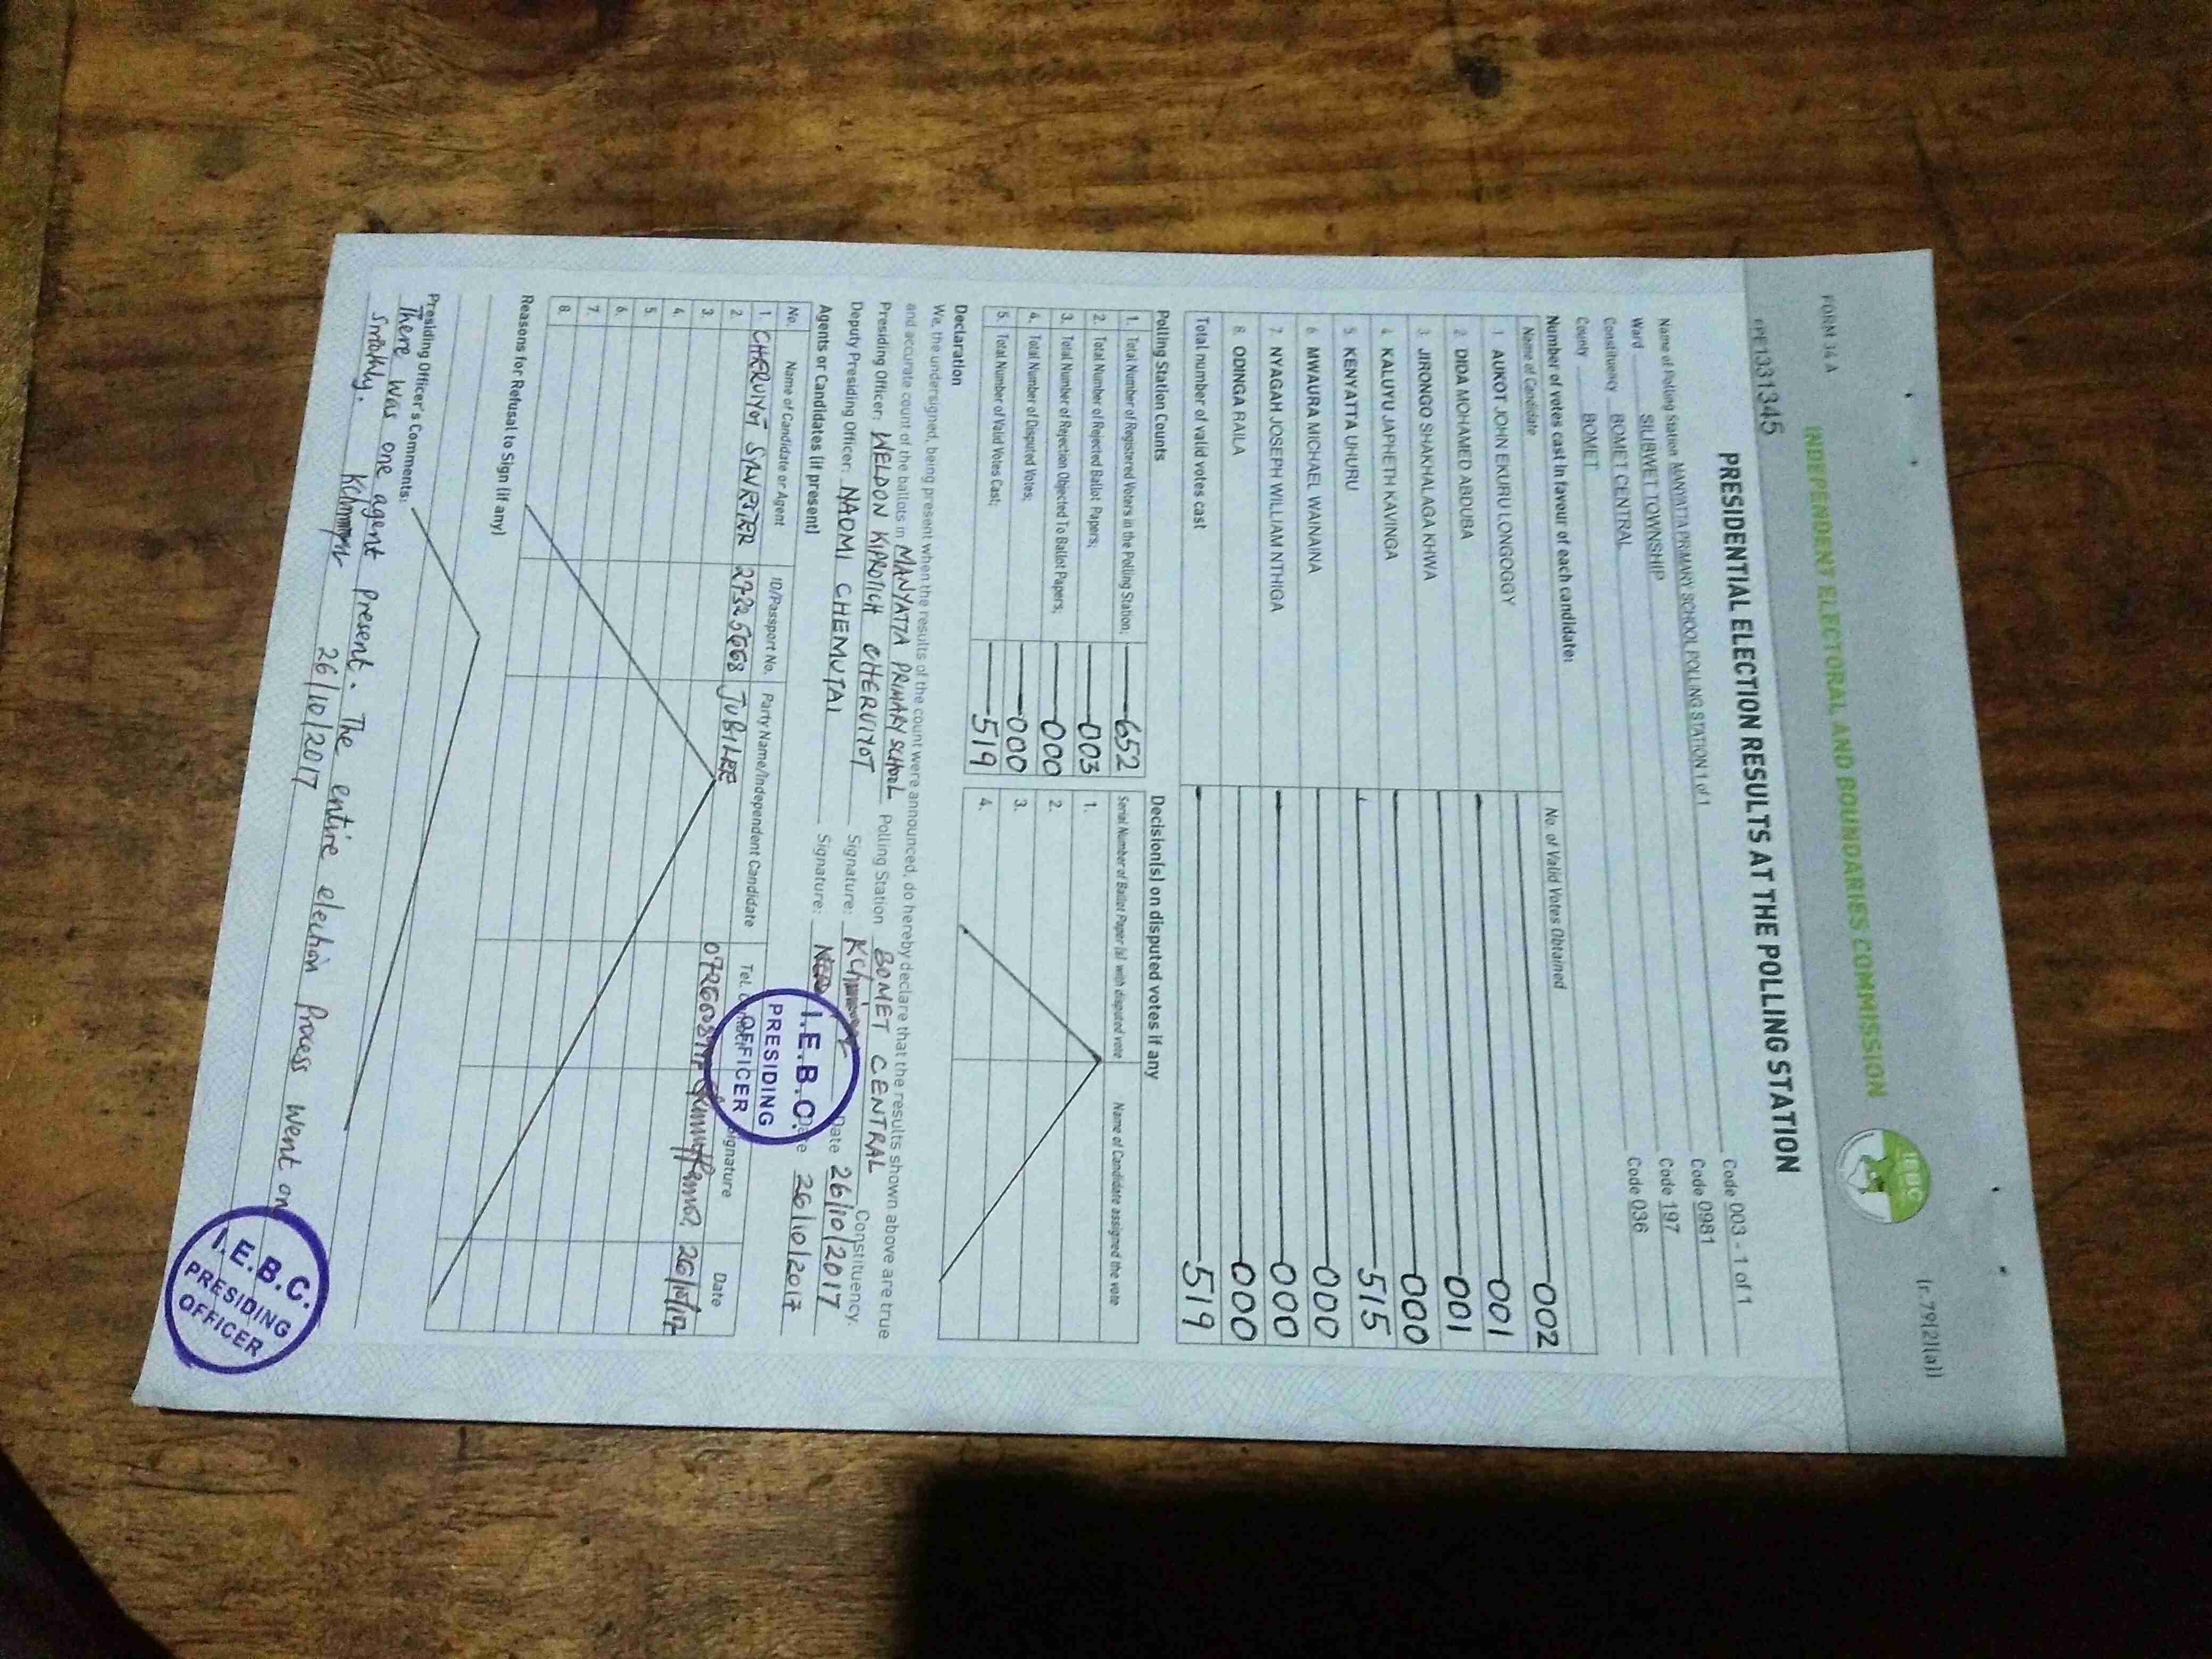 FORM 34 A
(r.79(2)(a))
INDEPENDENT ELECTORAL AND BOUNDARIES COMMISSION
IEBC
PRESIDENTIAL ELECTION RESULTS AT THE POLLING STATION
PE1331345
Name of Polling Station MANYATTA PRIMARY SCHOOL POLLING STATION 1 of 1 Code 003 - 1 of 1
Ward SILIBWET TOWNSHIP Code 0981
Constituency BOMET CENTRAL Code 197
County BOMET Code 036
Number of votes cast in favour of each candidate:
Name of Candidate No. of Valid Votes Obtained
1. AUKOT JOHN EKURU LONGOGGY 002
2. DIDA MOHAMED ABDUBA 001
3. JIRONGO SHAKHALAGA KHWA 001
4. KALUYU JAPHETH KAVINGA 000
5. KENYATTA UHURU 515
6. MWAURA MICHAEL WAINAINA 000
7. NYAGAH JOSEPH WILLIAM NTHIGA 000
8. ODINGA RAILA 000
Total number of valid votes cast 519
Polling Station Counts
1. Total Number of Registered Voters in the Polling Station; 652
2. Total Number of Rejected Ballot Papers; 003
3. Total Number of Rejection Objected To Ballot Papers; 000
4. Total Number of Disputed Votes; 000
5. Total Number of Valid Votes Cast; 519
Decision(s) on disputed votes if any
Serial Number of Ballot Paper (s) with disputed vote Name of Candidate assigned the vote
1.
2.
3.
4.
Declaration
We, the undersigned, being present when the results of the count were announced, do hereby declare that the results shown above are true
and accurate count of the ballots in MANYATTA PRIMARY SCHOOL Polling Station BOMET CENTRAL Constituency.
Presiding Officer: WELDON KIPROTICH CHERUIYOT Signature: Date 26/10/2017
Deputy Presiding Officer: NAOMI CHEMUTAI Signature: Date 26/10/2017
I.E.B.C.
PRESIDING
OFFICER
Agents or Candidates (if present)
No. Name of Candidate or Agent ID/Passport No. Party Name/Independent Candidate Tel. Signature Date
1. CHERUIYOT SYLVESTER 27325668 JUBILEE 26/10/17
2.
3.
4.
5.
6.
7.
8.
Reasons for Refusal to Sign (if any)
Presiding Officer's Comments:
There was one agent present. The entire election process went on
smoothly. 26/10/2017
I.E.B.C.
PRESIDING
OFFICER